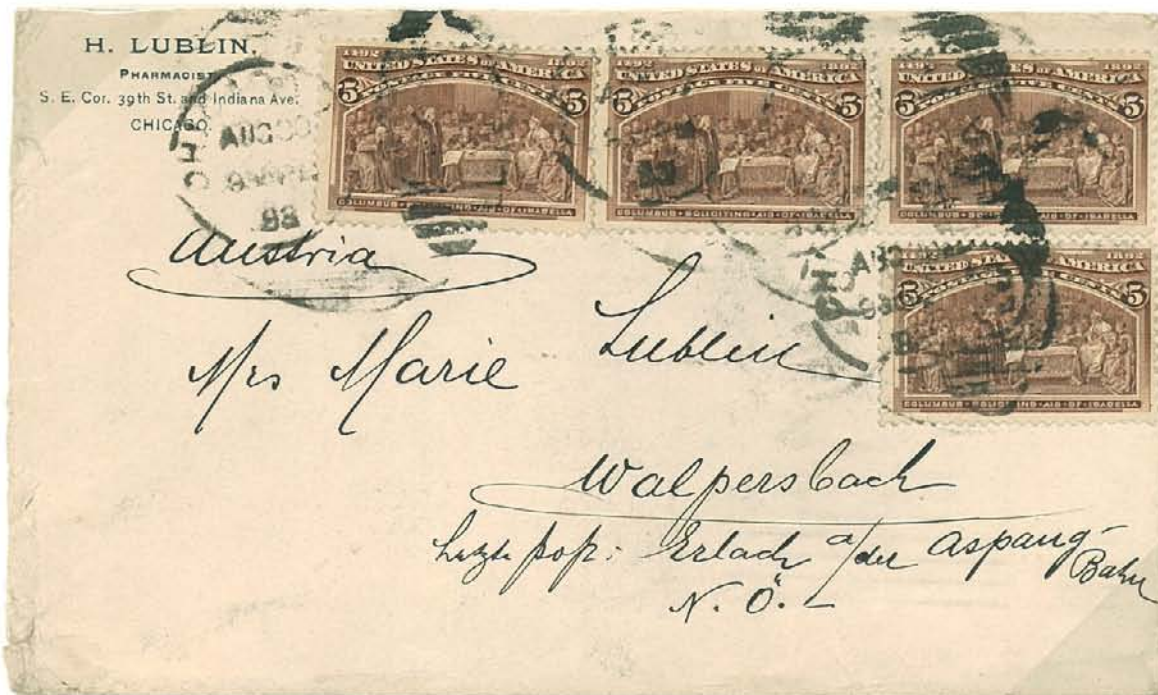 H. LUBLIN,
PHARMACIST
S. E. Cor. 39th St. and Indiana Ave.
CHICAGO.
1492 1892
UNITED STATES OF AMERICA
5 POSTAGE FIVE CENTS 5
COLUMBUS · SOLICITING · AID · OF · ISABELLA
1492 1892
UNITED STATES OF AMERICA
5 POSTAGE FIVE CENTS 5
COLUMBUS · SOLICITING · AID · OF · ISABELLA
1492 1892
UNITED STATES OF AMERICA
5 POSTAGE FIVE CENTS 5
COLUMBUS · SOLICITING · AID · OF · ISABELLA
1892
UNITED STATES OF AMERICA
5 5
COLUMBUS · SOLICITING · AID · OF · ISABELLA
AUG 30
Austria
Mrs Marie Lublin
Walpersbach
Letzte Post: Erlach a/der Aspang-
Bahn
N. Ö.